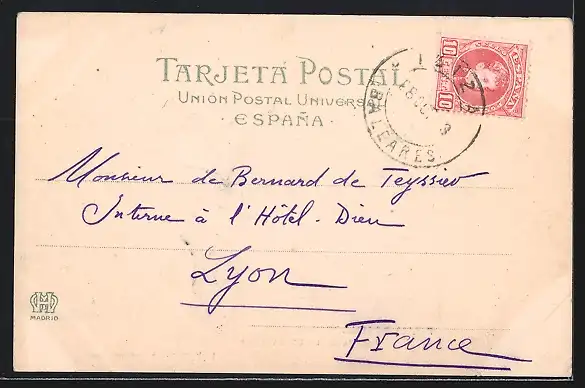 TARJETA POSTAL
UNIÓN POSTAL UNIVERSAL
· ESPAÑA ·
10 CTS 10
ESPAÑA
BALEARES
Monsieur de Bernard de Teyssier
Interne à l'Hôtel-Dieu
Lyon
France
MADRID